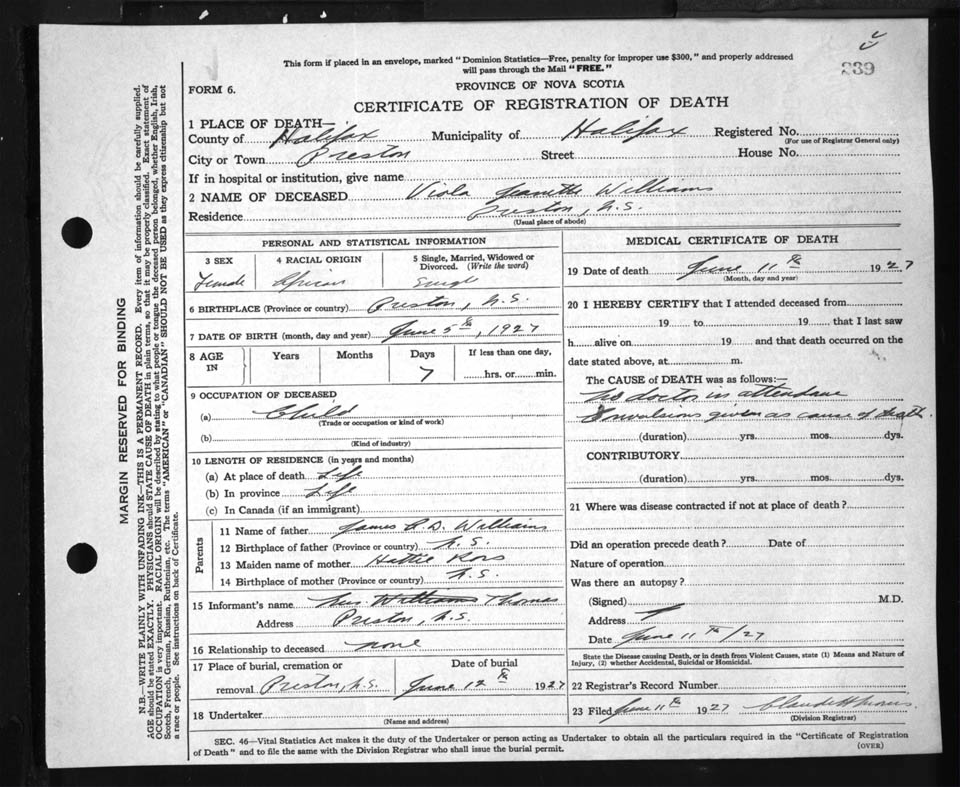 This form if placed in an envelope, marked "Dominion Statistics—Free, penalty for improper use $300," and properly addressed
will pass through the Mail "FREE."
239
FORM 6.
PROVINCE OF NOVA SCOTIA
CERTIFICATE OF REGISTRATION OF DEATH
1 PLACE OF DEATH—
County of Halifax Municipality of Halifax Registered No.
(For use of Registrar General only)
City or Town Preston Street House No.
If in hospital or institution, give name
2 NAME OF DECEASED Viola Williams
Residence Preston, N.S.
(Usual place of abode)
PERSONAL AND STATISTICAL INFORMATION
3 SEX 4 RACIAL ORIGIN 5 Single, Married, Widowed or
Divorced. (Write the word)
Female African Single
6 BIRTHPLACE (Province or country) Preston, N.S.
7 DATE OF BIRTH (month, day and year) June 5th, 1927
8 AGE IN Years Months Days If less than one day,
7 hrs. or min.
9 OCCUPATION OF DECEASED
(a) Child
(Trade or occupation or kind of work)
(b)
(Kind of industry)
10 LENGTH OF RESIDENCE (in years and months)
(a) At place of death Life
(b) In province Life
(c) In Canada (if an immigrant)
Parents
11 Name of father James Williams
12 Birthplace of father (Province or country) N.S.
13 Maiden name of mother Hattie Ross
14 Birthplace of mother (Province or country) N.S.
15 Informant's name Mrs. Williams Thomas
Address Preston, N.S.
16 Relationship to deceased none
17 Place of burial, cremation or Date of burial
removal Preston, N.S. June 12th 1927
18 Undertaker
(Name and address)
MEDICAL CERTIFICATE OF DEATH
19 Date of death June 11th 1927
(Month, day and year)
20 I HEREBY CERTIFY that I attended deceased from
19 to 19 that I last saw
h alive on 19 and that death occurred on the
date stated above, at m.
The CAUSE OF DEATH was as follows:—
No doctor in attendance
Convulsions given as cause of death.
(duration) yrs. mos. dys.
CONTRIBUTORY
(duration) yrs. mos. dys.
21 Where was disease contracted if not at place of death?
Did an operation precede death? Date of
Nature of operation
Was there an autopsy?
(Signed) M.D.
Address
Date June 11th/27
State the Disease causing Death, or in death from Violent Causes, state (1) Means and Nature of
Injury, (2) whether Accidental, Suicidal or Homicidal.
22 Registrar's Record Number
23 Filed June 11th 1927
(Division Registrar)
SEC. 46—Vital Statistics Act makes it the duty of the Undertaker or person acting as Undertaker to obtain all the particulars required in the "Certificate of Registration
of Death" and to file the same with the Division Registrar who shall issue the burial permit.
(OVER)
MARGIN RESERVED FOR BINDING
N.B.—WRITE PLAINLY WITH UNFADING INK—THIS IS A PERMANENT RECORD. Every item of information should be carefully supplied.
AGE should be stated EXACTLY. PHYSICIANS should STATE CAUSE OF DEATH in plain terms, so that it may be properly classified. Exact statement of
OCCUPATION is very important. RACIAL ORIGIN will be described by stating to what people or tongue the deceased person belonged, whether English, Irish,
Scotch, French, German, Russian, Ruthenian, etc. The terms "AMERICAN" or "CANADIAN" SHOULD NOT BE USED as they express citizenship but not
a race or people. See instructions on back of Certificate.